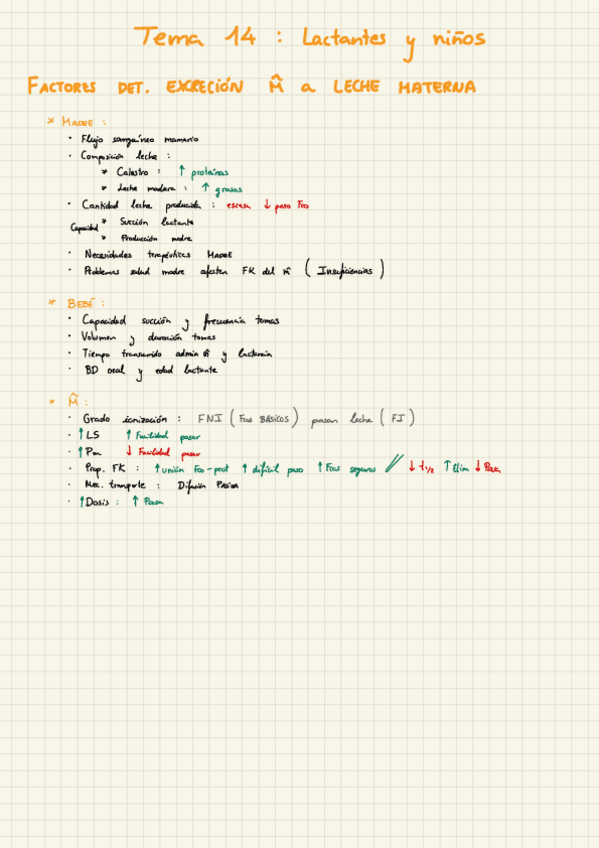 Tema 14 : Lactantes y niños
FACTORES DET. EXCRECIÓN M̂ a LECHE MATERNA
* MADRE :
· Flujo sanguíneo mamario
· Composición leche :
* Calostro : ↑ proteínas
* Leche madura : ↑ grasas
· Cantidad leche producida : escasa ↓ paso Fco
Capacidad * Succión lactante
* Producción madre
· Necesidades terapéuticas MADRE
· Problemas salud madre afecten FK del M̂ ( Insuficiencias )
* BEBÉ :
· Capacidad succión y frecuencia tomas
· Volumen y duración tomas
· Tiempo transcurrido admin M̂ y lactancia
· BD oral y edad lactante
* M̂ :
· Grado ionización : FNI ( Fcos BÁSICOS ) pasan leche ( FI )
· ↑ LS ↑ Facilidad pasar
· ↑ Pm ↓ Facilidad pasar
· Prop. FK : ↑ unión Fco-prot ↑ difícil paso ↑ Fcos seguros // ↓ t1/2 ↑ Elim ↓ Pasa
· Mec. transporte : Difusión Pasiva
· ↑ Dosis : ↑ Pasa